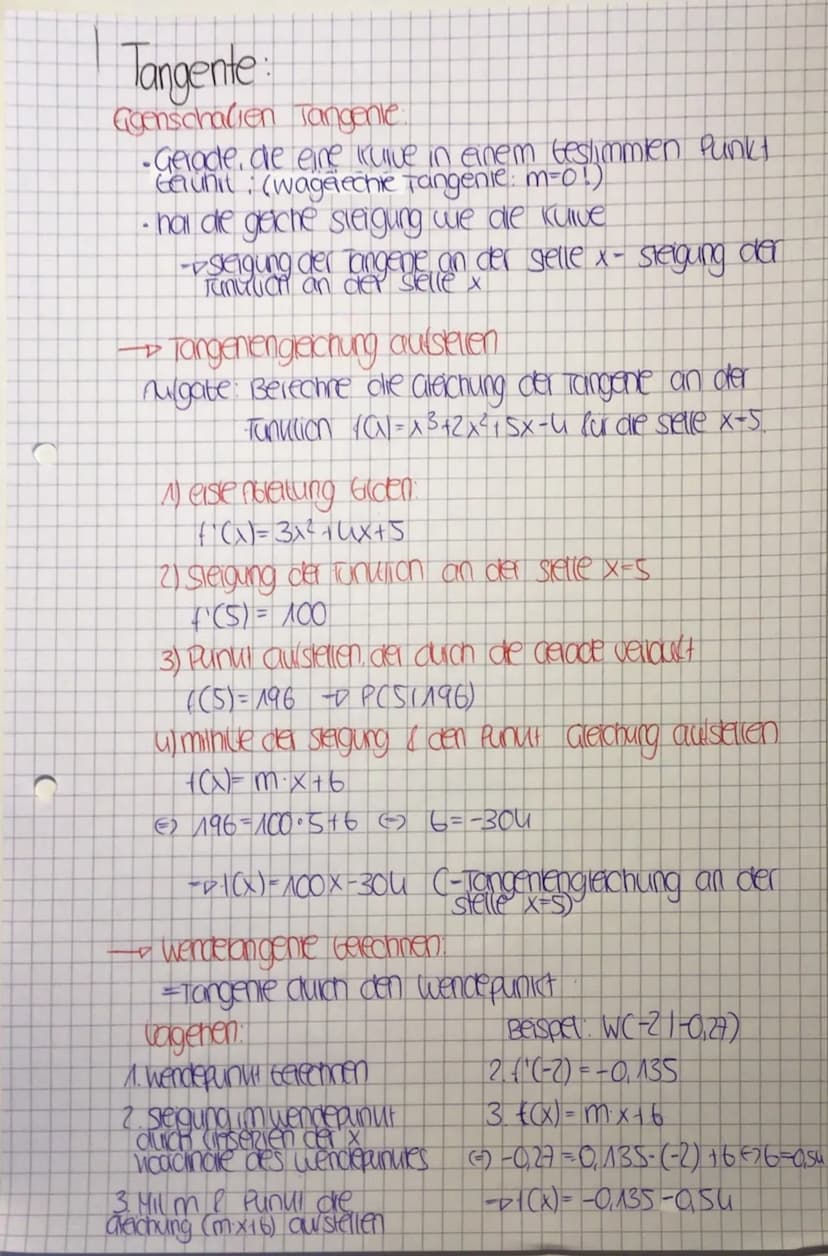 Tangente:
Eigenschaften Tangente:
· Gerade, die eine Kurve in einem bestimmten Punkt
berührt ; (wagerechte Tangente: m=0!)
· hat die gleiche Steigung wie die Kurve
→ Steigung der Tangente an der Stelle x = Steigung der
Funktion an der Stelle x
→ Tangentengleichung aufstellen
Aufgabe: Berechne die Gleichung der Tangente an der
Funktion f(x)=x³+2x²+5x-4 für die Stelle x=5
1) erste Ableitung bilden:
f'(x)=3x²+4x+5
2) Steigung der Funktion an der Stelle x=5
f'(5)=100
3) Punkt aufstellen, der durch die Gerade verläuft
f(5)=196 → P(5|196)
4) mithilfe der Steigung & den Punkt Gleichung aufstellen
t(x)=m·x+b
⇔ 196=100·5+b ⇔ b=-304
→ t(x)=100x-304 (=Tangentengleichung an der
Stelle x=5)
→ Wendetangente berechnen:
=Tangente durch den Wendepunkt
Vorgehen: Beispiel: W(-2|-0,27)
1. Wendepunkt berechnen 2. f'(-2)=-0,135
2. Steigung im Wendepunkt 3. t(x)=m·x+b
durch Einsetzen der x
Koordinate des Wendepunktes ⇔ -0,27=0,135·(-2)+b⇔b=0,54
3. Mit m & Punkt die → t(x)=-0,135-0,54
Gleichung (m·x+b) aufstellen